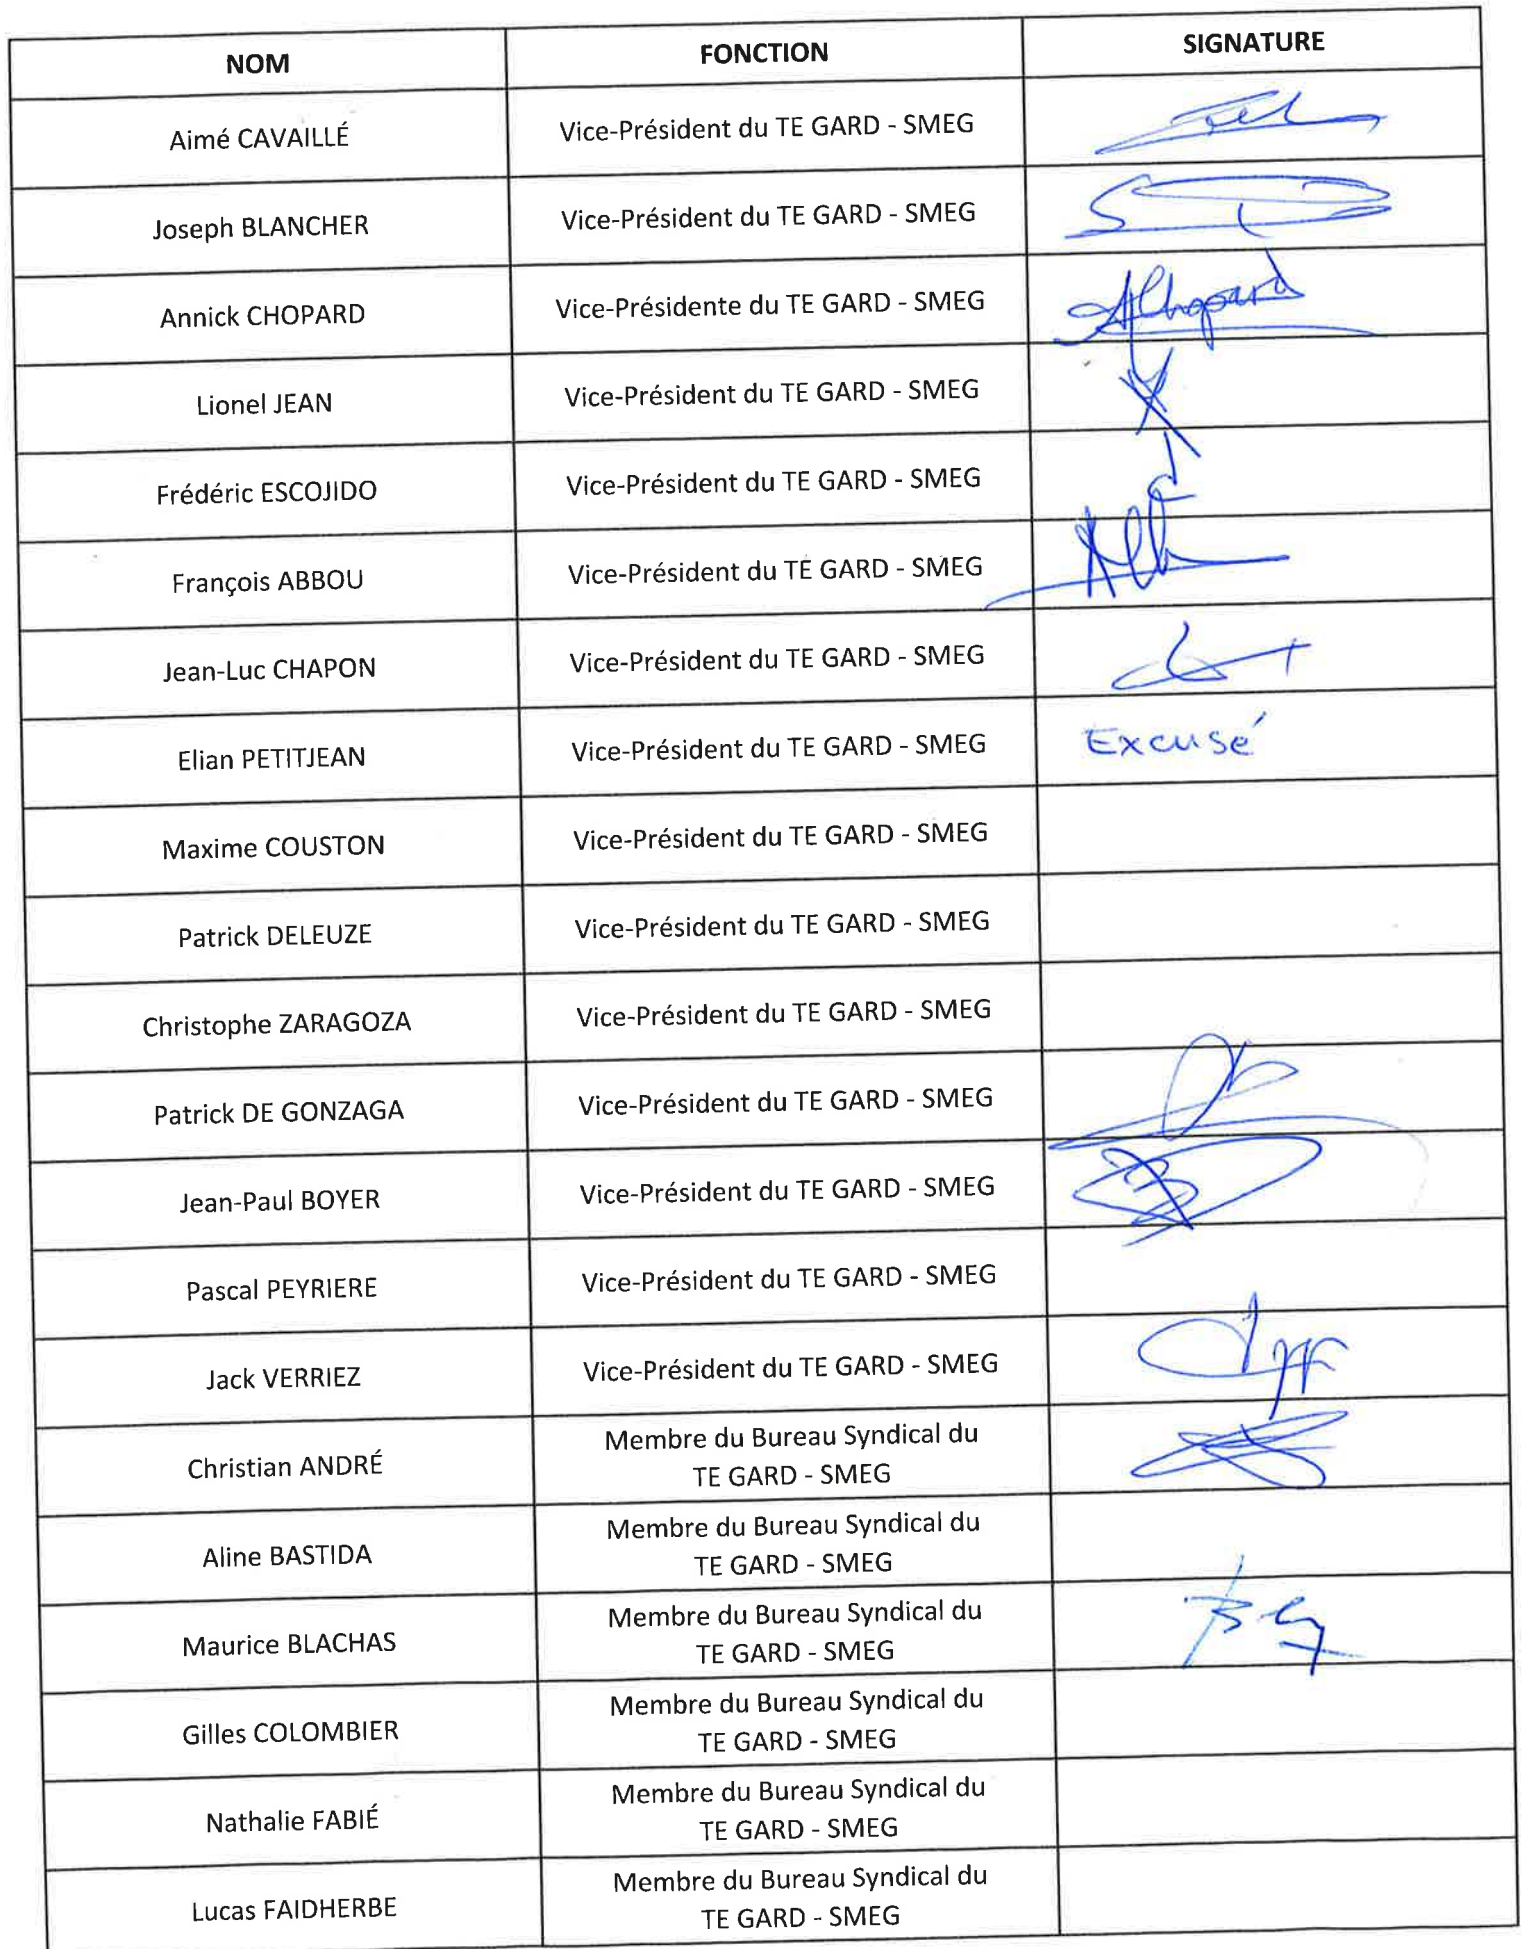 NOM FONCTION SIGNATURE
Aimé CAVAILLÉ Vice-Président du TE GARD - SMEG
Joseph BLANCHER Vice-Président du TE GARD - SMEG
Annick CHOPARD Vice-Présidente du TE GARD - SMEG AChopard
Lionel JEAN Vice-Président du TE GARD - SMEG
Frédéric ESCOJIDO Vice-Président du TE GARD - SMEG
François ABBOU Vice-Président du TE GARD - SMEG
Jean-Luc CHAPON Vice-Président du TE GARD - SMEG
Elian PETITJEAN Vice-Président du TE GARD - SMEG Excusé
Maxime COUSTON Vice-Président du TE GARD - SMEG
Patrick DELEUZE Vice-Président du TE GARD - SMEG
Christophe ZARAGOZA Vice-Président du TE GARD - SMEG
Patrick DE GONZAGA Vice-Président du TE GARD - SMEG
Jean-Paul BOYER Vice-Président du TE GARD - SMEG
Pascal PEYRIERE Vice-Président du TE GARD - SMEG
Jack VERRIEZ Vice-Président du TE GARD - SMEG
Christian ANDRÉ Membre du Bureau Syndical du
TE GARD - SMEG
Aline BASTIDA Membre du Bureau Syndical du
TE GARD - SMEG
Maurice BLACHAS Membre du Bureau Syndical du
TE GARD - SMEG
Gilles COLOMBIER Membre du Bureau Syndical du
TE GARD - SMEG
Nathalie FABIÉ Membre du Bureau Syndical du
TE GARD - SMEG
Lucas FAIDHERBE Membre du Bureau Syndical du
TE GARD - SMEG